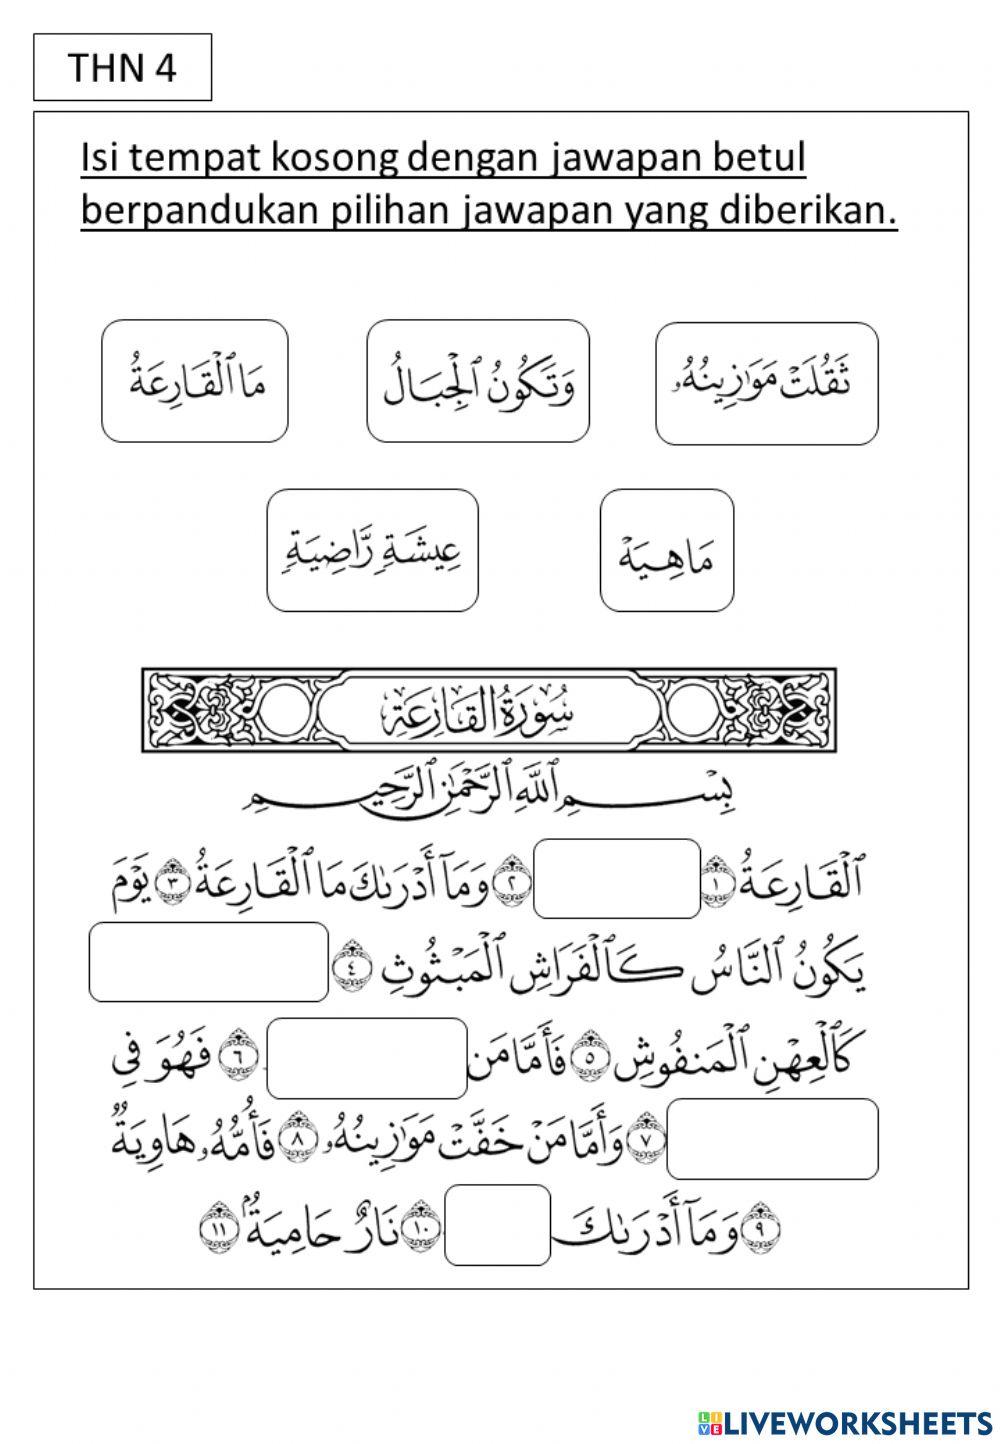 THN 4
Isi tempat kosong dengan jawapan betul
berpandukan pilihan jawapan yang diberikan.
مَا ٱلْقَارِعَةُ
وَتَكُونُ ٱلْجِبَالُ
ثَقُلَتْ مَوَٰزِينُهُۥ
عِيشَةٍ رَّاضِيَةٍ
مَا هِيَهْ
سُورَةُ الْقَارِعَةِ
بِسْمِ ٱللَّهِ ٱلرَّحْمَٰنِ ٱلرَّحِيمِ
ٱلْقَارِعَةُ ١ ٢ وَمَآ أَدْرَىٰكَ مَا ٱلْقَارِعَةُ ٣ يَوْمَ
يَكُونُ ٱلنَّاسُ كَٱلْفَرَاشِ ٱلْمَبْثُوثِ ٤
كَٱلْعِهْنِ ٱلْمَنفُوشِ ٥ فَأَمَّا مَن ٦ فَهُوَ فِى
٧ وَأَمَّا مَنْ خَفَّتْ مَوَٰزِينُهُۥ ٨ فَأُمُّهُۥ هَاوِيَةٌ
٩ وَمَآ أَدْرَىٰكَ ١٠ نَارٌ حَامِيَةٌۢ ١١
LIVEWORKSHEETS